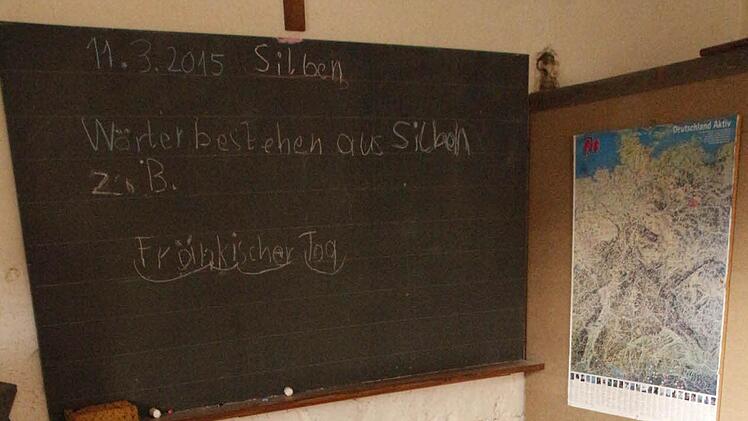 11.3.2015 Silben
Wörter bestehen aus Silben
z.B.
Fränkischer Tag
Deutschland Aktiv